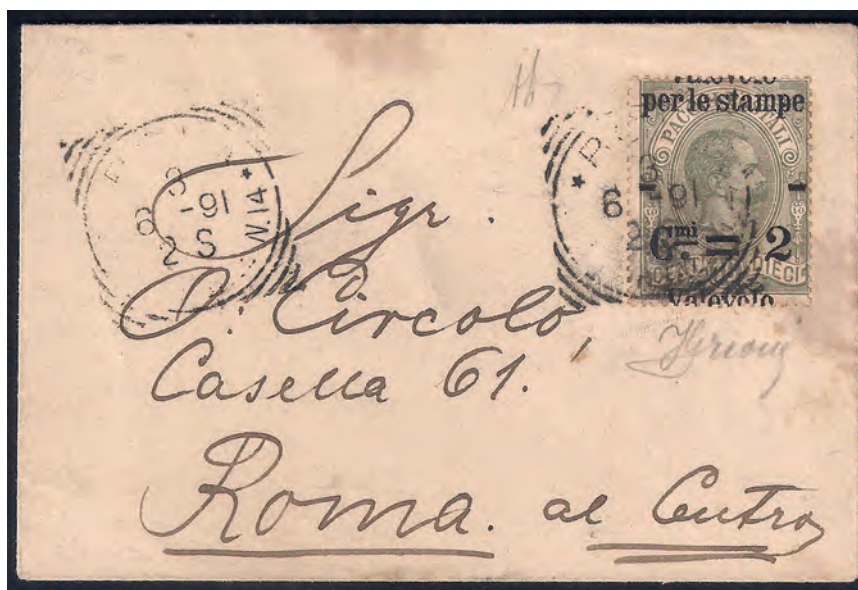 Valevole
per le stampe
PACCHI POSTALI
Cmi. = 2
CENTESIMI DIECI
Valevole
6 -91
2 S
W.14 *
6 -91
2
Sigr.
D: Circolo,
Casella 61.
Roma. al Centro